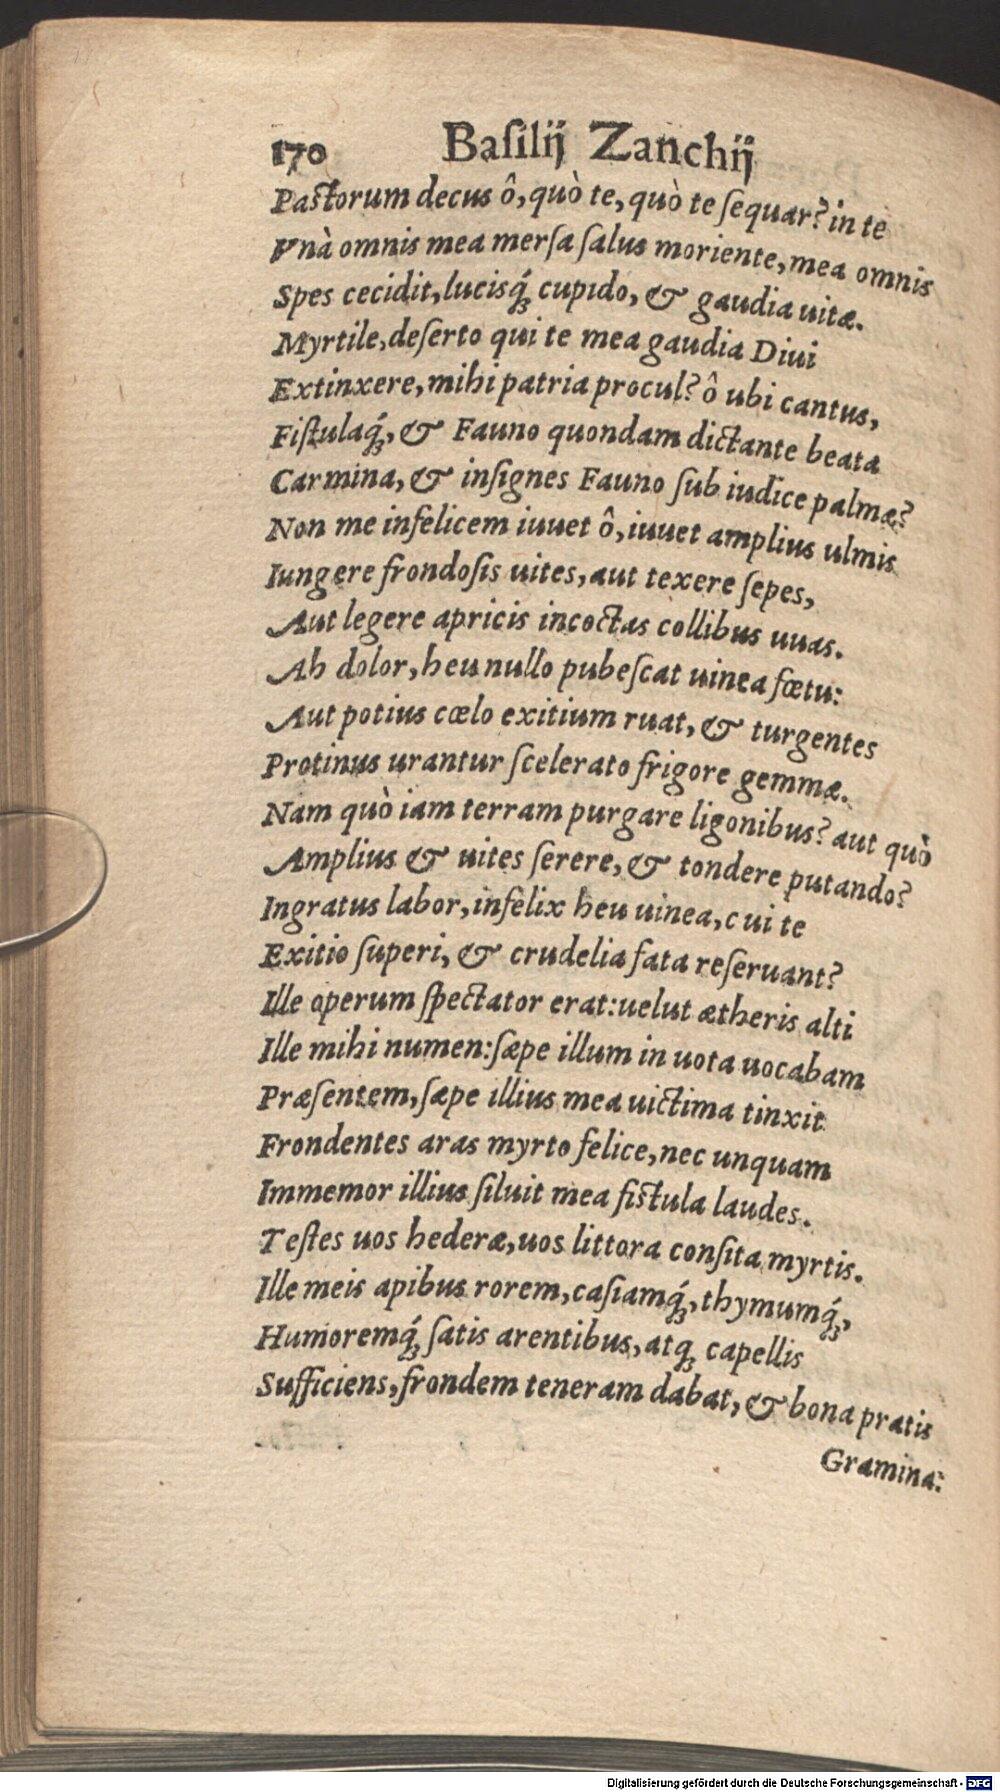 170 Baſilij Zanchij
Paſtorum decus ô, quò te, quò te ſequar? in te
Vnà omnis mea merſa ſalus moriente, mea omnis
Spes cecidit, lucisq́; cupido, & gaudia uitæ.
Myrtile, deſerto qui te mea gaudia Diui
Extinxere, mihi patria procul? ô ubi cantus,
Fiſtulaq́;, & Fauno quondam dictante beata
Carmina, & inſignes Fauno ſub iudice palmæ?
Non me infelicem iuuet ô, iuuet amplius ulmis
Iungere frondoſis uites, aut texere ſepes,
Aut legere apricis incoctas collibus uuas.
Ah dolor, heu nullo pubeſcat uinea fœtu:
Aut potius cœlo exitium ruat, & turgentes
Protinus urantur ſcelerato frigore gemmæ.
Nam quò iam terram purgare ligonibus? aut quò
Amplius & uites ſerere, & tondere putando?
Ingratus labor, infelix heu uinea, cui te
Exitio ſuperi, & crudelia fata reſeruant?
Ille operum ſpectator erat: uelut ætheris alti
Ille mihi numen: ſæpe illum in uota uocabam
Præſentem, ſæpe illius mea uictima tinxit
Frondentes aras myrto felice, nec unquam
Immemor illius ſiluit mea fiſtula laudes.
Teſtes uos hederæ, uos littora conſita myrtis.
Ille meis apibus rorem, caſiamq́;, thymumq́;,
Humoremq́; ſatis arentibus, atq; capellis
Sufficiens, frondem teneram dabat, & bona pratis
Gramina:
Digitalisierung gefördert durch die Deutsche Forschungsgemeinschaft - DFG